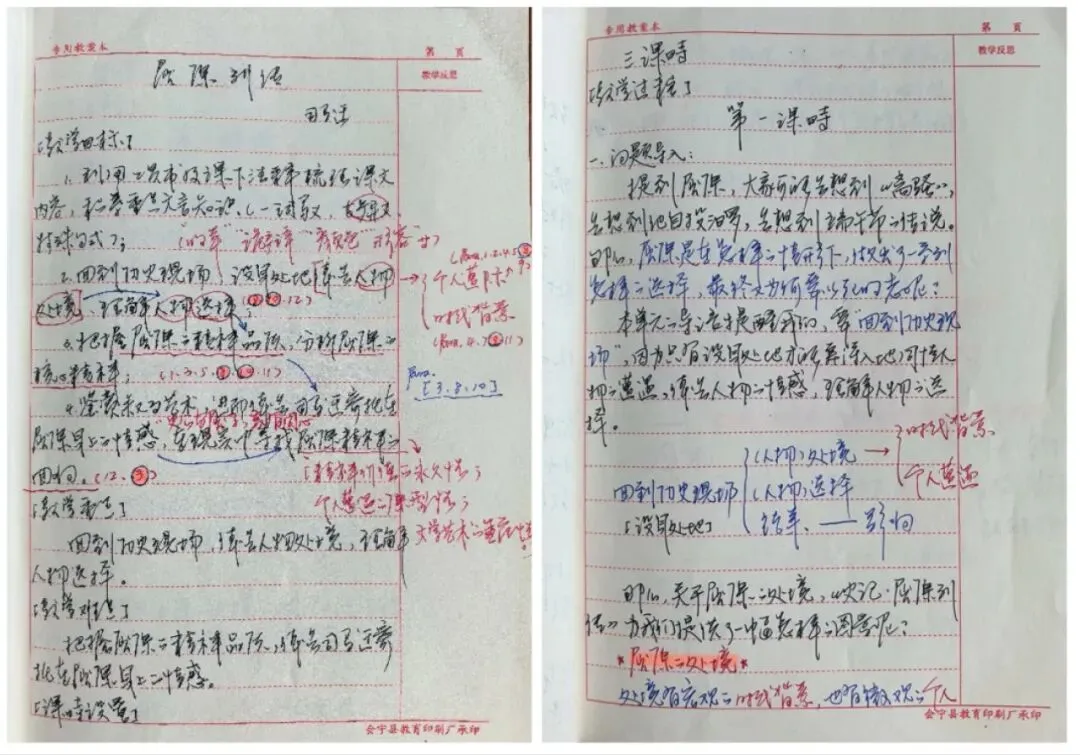 专用教案本
第 页
教学反思
屈原列传
司马迁
[教学目标]
1. 利用工具书及课下注释梳理课文
内容,积累重点文言知识。(一词多义, 古今异义,
特殊句式);
2. 回到历史现场,设身处地体会人物
处境,理解人物选择;
个人遭际
时代背景
3. 把握屈原的精神品质,分析屈原的
核心精神;
[3.8.10]
屈原身上的情感,在现实中寻找屈原精神的
回归。
个人遭遇的典型性;
[教学重点]
回到历史现场,体会人物处境,理解
人物选择。
[教学难点]
把握屈原的精神品质,体会司马迁寄
托在屈原身上的情感。
[课时设置]
会宁县教育印刷厂承印
专用教案本
第 页
教学反思
三课时
[教学过程]
第一课时
一、问题导入:
提到屈原,大家可能会想到《离骚》,
会想到他自投汨罗,会想到端午节的传说。
那么,屈原是在怎样的情形下,做出了一系列
怎样的选择,最终又为何要以死明志呢?
本单元的导语提醒我们,要“回到历史现
场”,因为只有设身处地才能够深入地同情人
物的遭遇,体会人物的情感,理解人物的选
择。
(人物)处境
时代背景
个人遭遇
回到历史现场
(人物)选择
[设身处地]
结果。——影响
那么,关于屈原的处境,《史记·屈原列
传》为我们提供了一幅怎样的图景呢?
*屈原的处境*
处境有宏观的时代背景,也有微观的个人
会宁县教育印刷厂承印